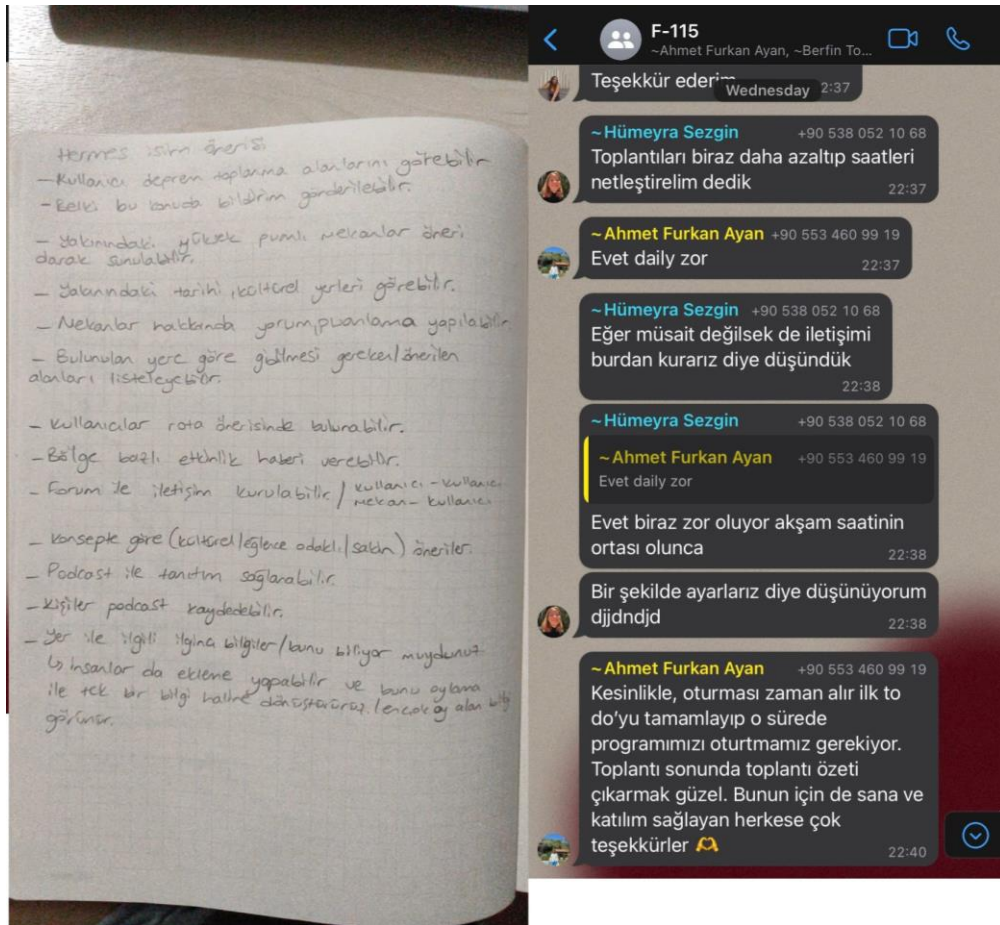 Hermes isim önerisi
- Kullanıcı deprem toplanma alanlarını görebilir
- Belki bu konuda bildirim gönderilebilir.
- Yakınındaki yüksek puanlı mekanlar öneri
olarak sunulabilir.
- Yakınındaki tarihi, kültürel yerleri görebilir.
- Mekanlar hakkında yorum, puanlama yapılabilir
- Bulunulan yere göre gidilmesi gereken/önerilen
alanları listeleyebilir.
- Kullanıcılar rota önerisinde bulunabilir.
- Bölge bazlı etkinlik haberi verebilir.
- Forum ile iletişim kurulabilir / kullanıcı - kullanıcı
mekan - kullanıcı
- Konsepte göre (kültürel/eğlence odaklı/sakin) öneriler.
- Podcast ile tanıtım sağlanabilir.
- Kişiler podcast kaydedebilir.
- Yer ile ilgili ilginç bilgiler/bunu biliyor muydunuz
↳ insanlar da ekleme yapabilir ve bunu oylama
ile tek bir bilgi haline dönüştürürüz. / en çok oy alan bilgi
görünür.
F-115
~Ahmet Furkan Ayan, ~Berfin To...
Teşekkür ederim 2:37
Wednesday
~Hümeyra Sezgin +90 538 052 10 68
Toplantıları biraz daha azaltıp saatleri
netleştirelim dedik
22:37
~Ahmet Furkan Ayan +90 553 460 99 19
Evet daily zor
22:37
~Hümeyra Sezgin +90 538 052 10 68
Eğer müsait değilsek de iletişimi
burdan kurarız diye düşündük
22:38
~Hümeyra Sezgin +90 538 052 10 68
~Ahmet Furkan Ayan +90 553 460 99 19
Evet daily zor
Evet biraz zor oluyor akşam saatinin
ortası olunca
22:38
Bir şekilde ayarlarız diye düşünüyorum
djjdndjd
22:38
~Ahmet Furkan Ayan +90 553 460 99 19
Kesinlikle, oturması zaman alır ilk to
do'yu tamamlayıp o sürede
programımızı oturtmamız gerekiyor.
Toplantı sonunda toplantı özeti
çıkarmak güzel. Bunun için de sana ve
katılım sağlayan herkese çok
teşekkürler 🫶
22:40